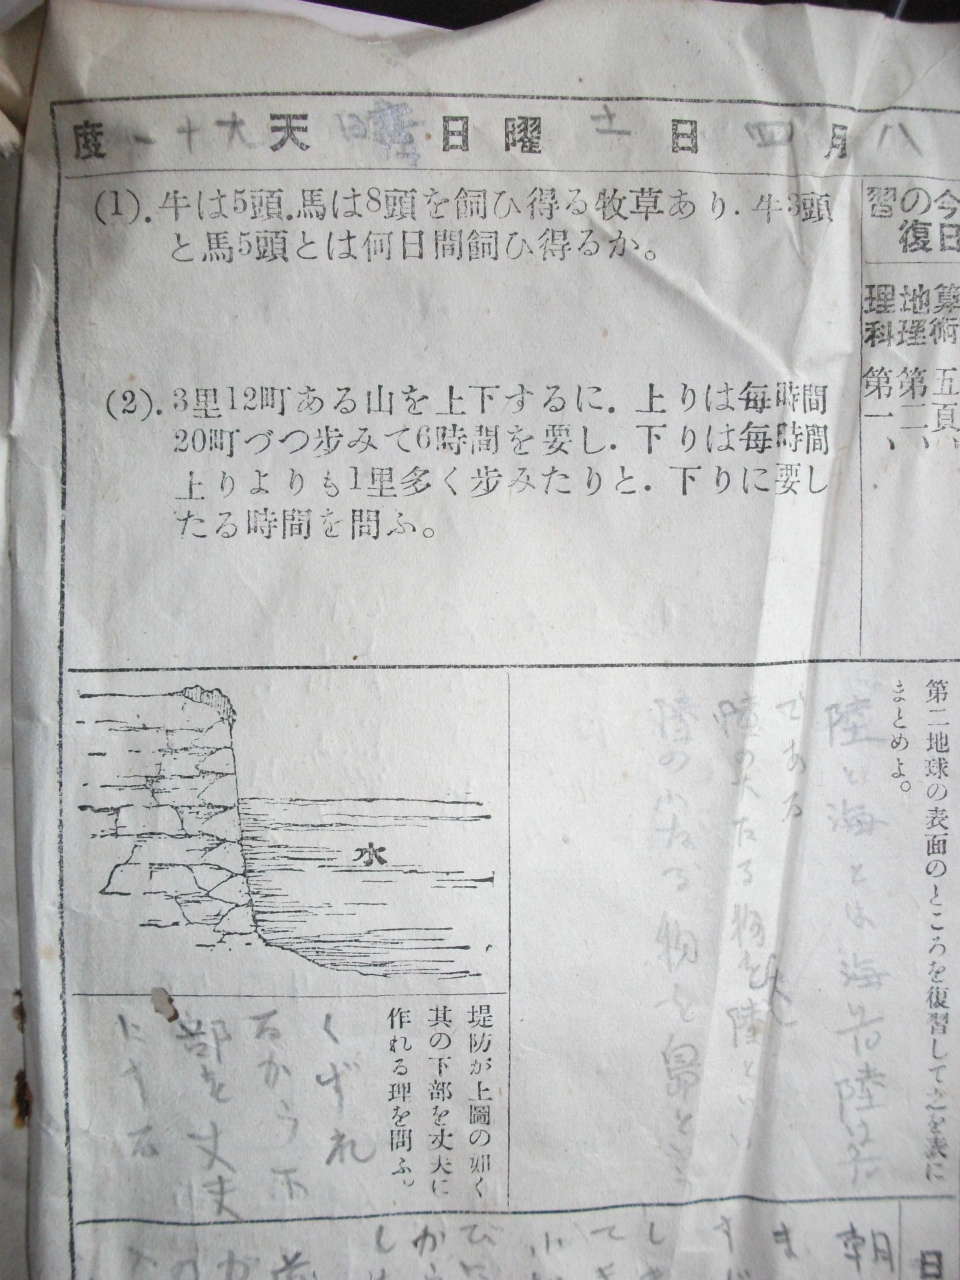 八月四日 土曜日 天 九十一度
今日
の復
習
算術 五頁、
地理 第二、
理科 第一、
(1). 牛は5頭.馬は8頭を飼ひ得る牧草あり. 牛3頭
と馬5頭とは何日間飼ひ得るか。
(2). 3里12町ある山を上下するに. 上りは毎時間
20町づつ歩みて6時間を要し. 下りは毎時間
上りよりも1里多く歩みたりと. 下りに要し
たる時間を問ふ。
第二地球の表面のところを復習して之を表に
まとめよ。
陸と海とは海
である
陸の大たる物を陸といい
陸の小なる物を島と
水
堤防が上圖の如く
其の下部を丈夫に
作れる理を問ふ。
くずれ
るから下
部を丈夫
にする
日
朝